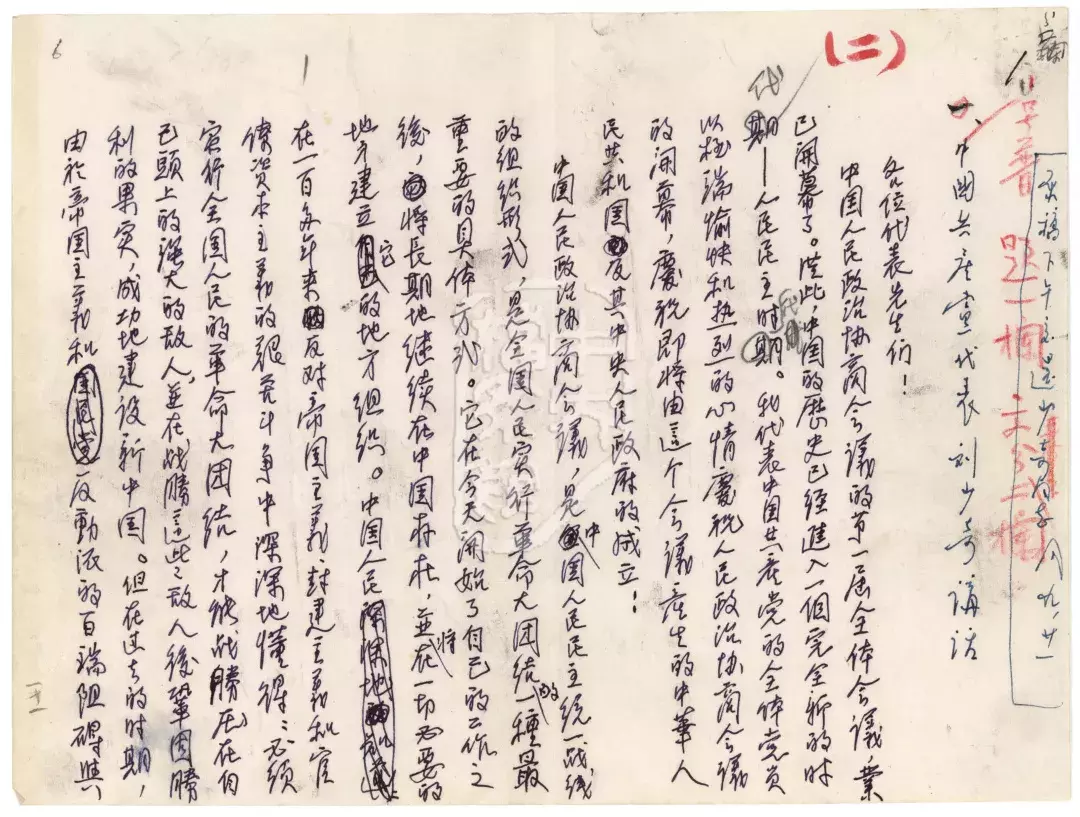 (二)
一、中國共產党代表刘少奇講话
各位代表先生们！
中国人民政治协商会議的第一届全体会議，業
已開幕了。從此，中国的歷史已经進入一個完全新的时
代——人民民主时代。我代表中国共產党的全体党员
以極端愉快和热烈的心情慶祝人民政治协商会議
的開幕，慶祝即将由這个会議産生的中華人
民共和国及其中央人民政府的成立！
中国人民政治协商会議，是中国人民民主统一战线
的组织形式，是全国人民实行革命大团结的一種最
重要的具体方式。它在今天開始了自己的工作之
後，将長期地继续在中国存在，並将在一切必要的
地方建立它的地方组织。中国人民
在一百多年来反对帝国主義、封建主義和官
僚资本主義的艰苦斗争中深深地懂得：必须
实行全国人民的革命大团结，才能战勝压在自
己頭上的强大的敌人，並在战勝這些敌人後鞏固勝
利的果实，成功地建设新中国。但在过去的时期，
由於帝国主義和反動派的百端阻碍与
6